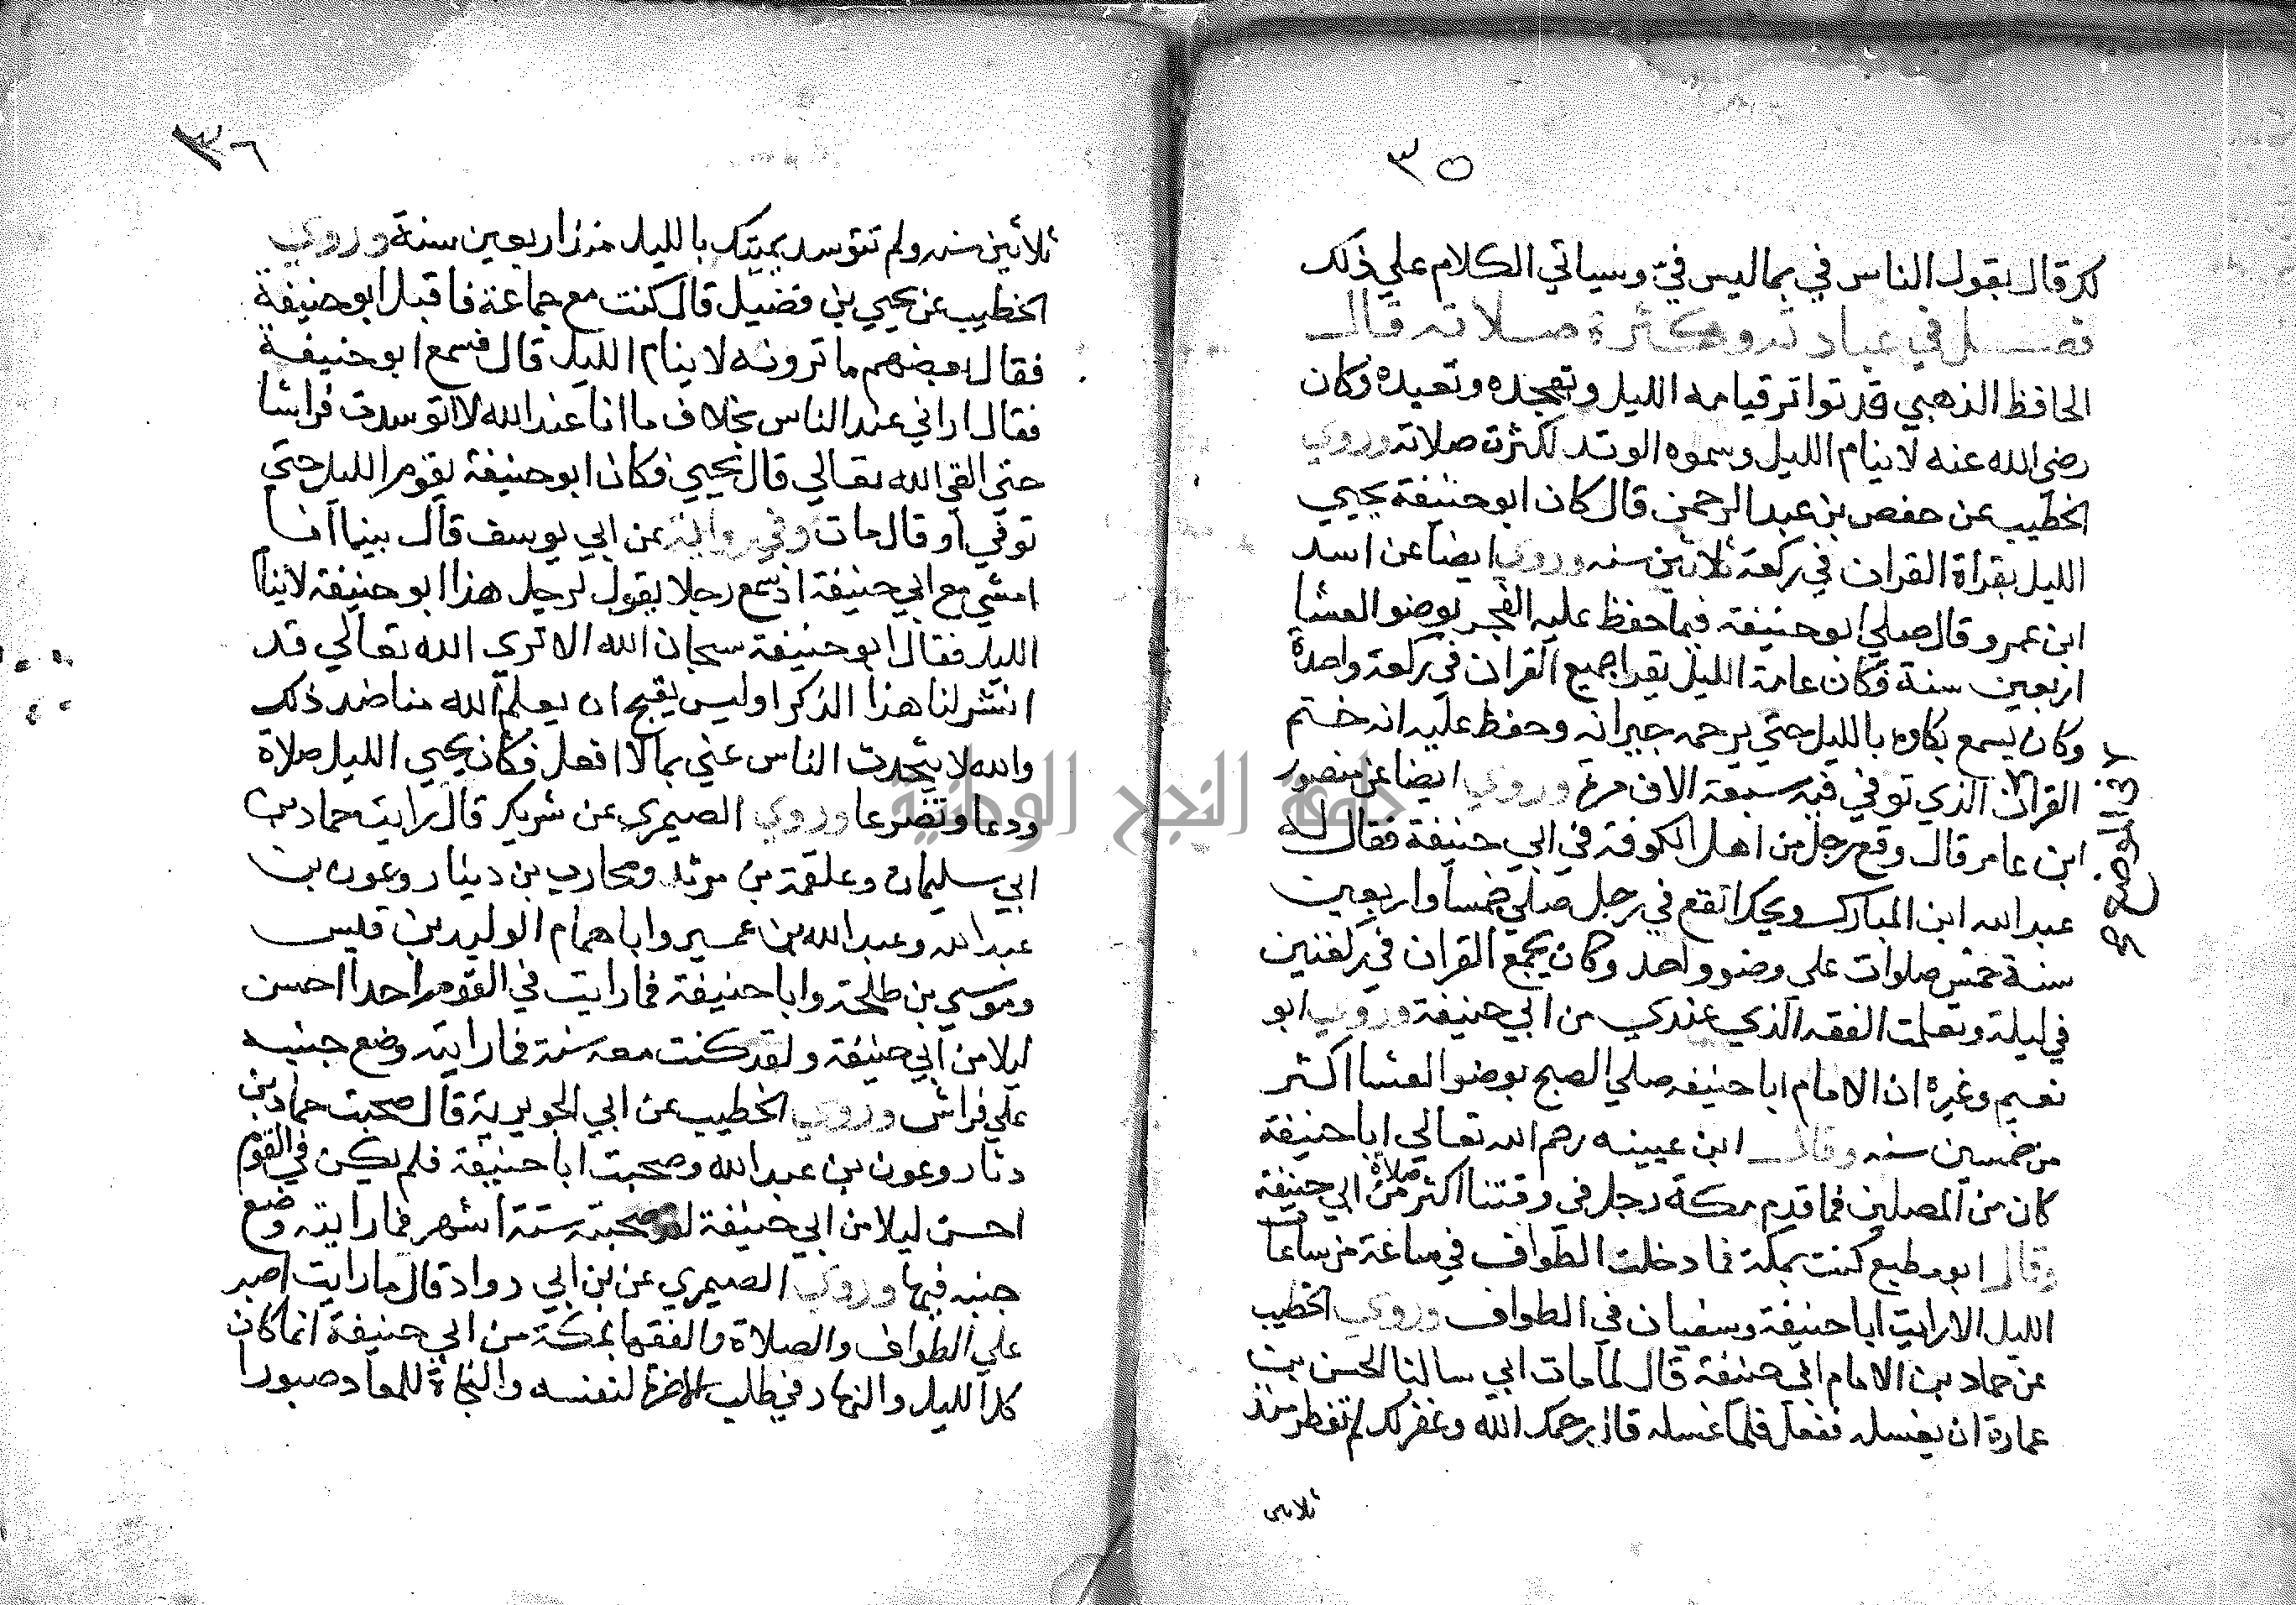 ٣٥
لكن قال بقول الناس في بما ليس فيّ وسياتي الكلام علي ذلك
فصل في عبادته وكثرة صلاته قال
الحافظ الذهبي قد تواتر قيامه الليل وتهجده وتعبده وكان
رضي الله عنه لا ينام الليل وسموه الوتد لكثرت صلاته وروي
الخطيب عن حفص بن عبد الرحمن قال كان ابو حنيفة يحيي
الليل بقراة القران في ركعة ثلاثين سنه وروي ايضا عن اسد
ابن عمر وقال صلي ابو حنيفة فيما حفظ عليه الفجر بوضو العشا
اربعين سنة فكان عامة الليل يقرا جميع القران في ركعة واحدة
وكان يسمع بكاوه بالليل حتي يرحمه جيرانه وحفظ عليه انه ختم
القران الذي توفي فيه سبعة الاف مرة وروي ايضا عن منصور
ابن عامر قال وقع رجل من اهل الكوفة في ابي حنيفة فقال له
عبد الله ابن المبارك ويحك اتقع في رجل صلي خمسا واربعين
سنة خمس صلوات علي وضو واحد وكان يجمع القران في ركعتين
في ليلة وتعلمت الفقه الذي عندي من ابي حنيفة وروي ابو
نعيم وغيره ان الامام ابا حنيفه صلي الصبح بوضو العشا اكثر
من خمسين سنه وقال ابن عيينه رحم الله تعالي ابا حنيفة
كان من المصلين فما قدم مكة رجل في وقتنا اكثر صلاة من ابي حنيفة
وقال ابو مطيع كنت بمكة فما دخلت الطواف في ساعة من ساعات
الليل الا رايت ابا حنيفة وسفيان في الطواف وروي الخطيب
عن حماد بن الامام ابي حنيفة قال لما مات ابي سالنا الحسن بن
عمارة ان يغسله ففعل فلما غسله قال يرحمك الله وغفر لك لم تفطر منذ
ثلاثين
٣٦
ثلاثين سنه ولم تتوسد يمينك بالليل منذ اربعين سنة وروي
الخطيب عن يحيي بن فضيل قال كنت مع جماعة فاقبل ابو حنيفة
فقال بعضهم ما ترونه لا ينام الليل قال فسمع ابو حنيفة
فقال اراني عند الناس بخلاف ما انا عند الله لا اتوسدت فراشا
حتي القي الله تعالي قال يحيي فكان ابو حنيفة يقوم الليل حتي
توفي او قال مات وفي رواية عن ابي يوسف قال بينما انا
امشي مع ابي حنيفة اذ سمع رجلا يقول لرجل هذا ابو حنيفة لا ينام
الليل فقال ابو حنيفة سبحان الله الا تري الله تعالي قد
انشر لنا هذا الذكر اوليس يقبح ان يعلم الله منا ضد ذلك
والله لا يتحدث الناس عني بما لا افعل فكان يحيي الليل صلاة
ودعا وتضرعا وروي الصيمري عن شريك قال رايت حماد بن
ابي سليمان وعلقمة بن مرثد ومحارب بن دينار وعون بن
عبد الله وعبد الله بن عمير وابا همام الوليد بن قيس
وموسي بن طلحة وابا حنيفة فما رايت في القوم احدا احسن
ليلا من ابي حنيفة ولقد كنت معه سنة فما رايته وضع جنبه
علي فراش وروي الخطيب عن ابي الجويرية قال صحبت حماد بن
دثار وعون بن عبد الله وصحبت ابا حنيفة فلم يكن في القوم
احسن ليلا من ابي حنيفة صحبته ستة اشهر فما رايته وضع
جنبه فيها وروي الصيمري عن بن ابي رواد قال ما رايت اصبر
علي الطواف والصلاة والفقها بمكة من ابي حنيفة انما كان
كل الليل والنهار في طلب الاخرة لنفسه والنجاة للمعاد صبورا